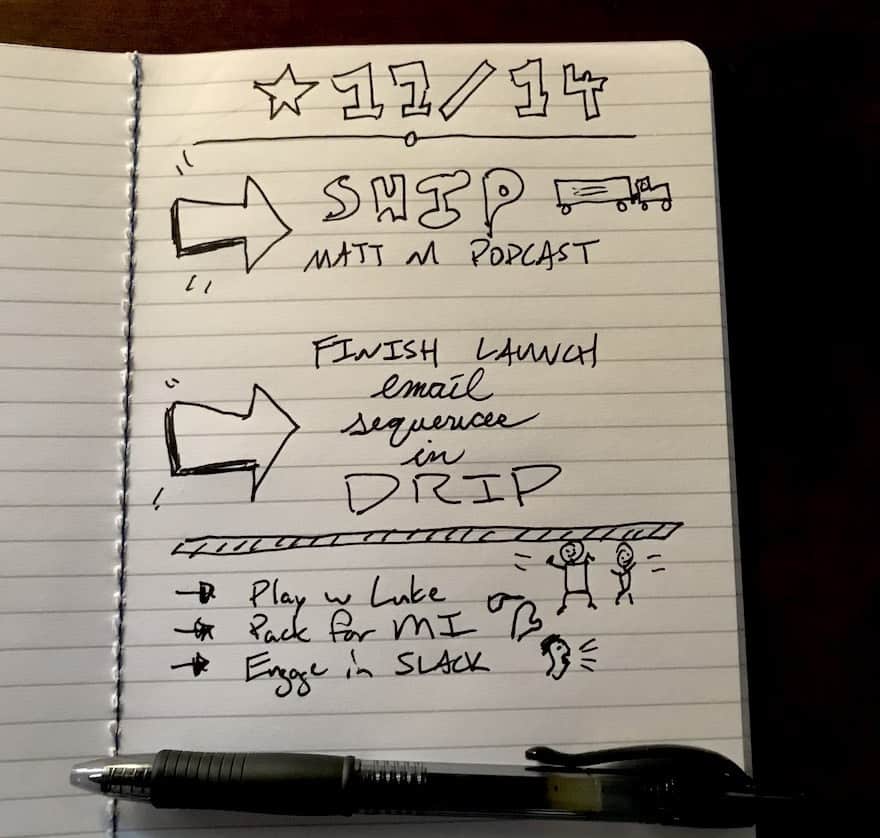 11/14
SHIP
MATT M PODCAST
FINISH LAUNCH
email
sequences
in
DRIP
Play w Luke
Pack for MI
Engage in SLACK